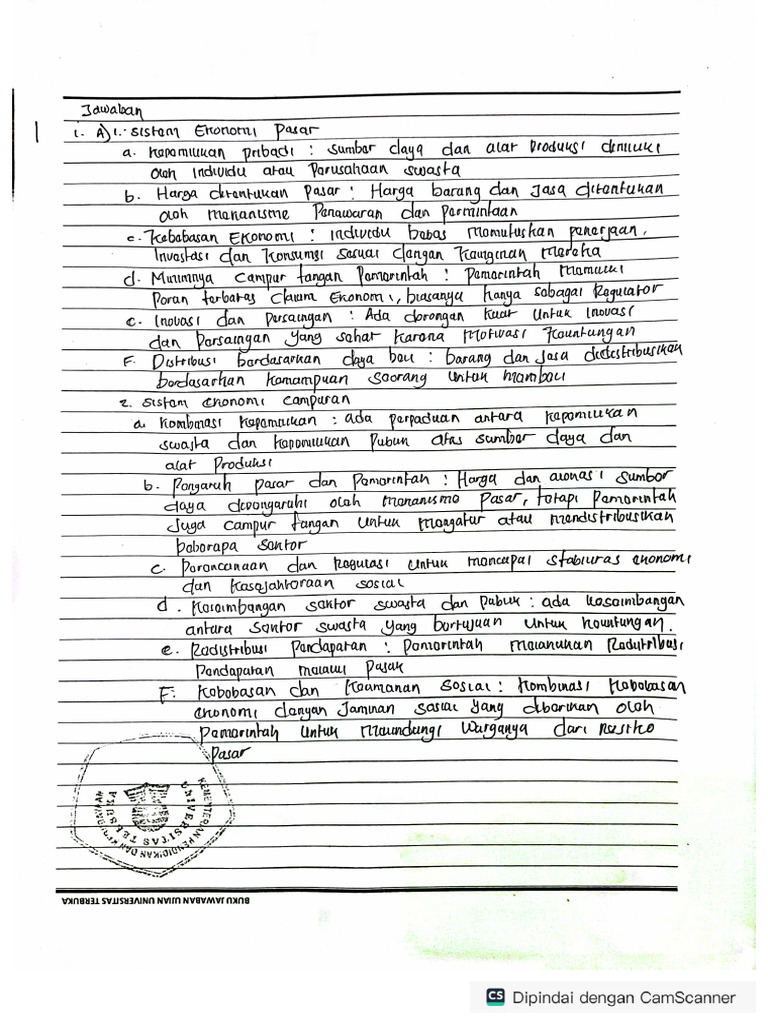 Jawaban
1. A) 1. Sistem Ekonomi Pasar
a. Kepemilikan pribadi : sumber daya dan alat Produksi dimiliki
oleh individu atau Perusahaan swasta
b. Harga ditentukan Pasar : Harga barang dan Jasa ditentukan
oleh mekanisme Penawaran dan permintaan
c. Kebebasan Ekonomi : individu bebas memutuskan pekerjaan,
Investasi dan konsumsi sesuai dengan keinginan mereka
d. Minimnya campur tangan Pemerintah : Pemerintah memiliki
Peran terbatas dalam Ekonomi, biasanya hanya sebagai Regulator
e. Inovasi dan Persaingan : Ada dorongan kuat untuk Inovasi
dan Persaingan yang sehat karena motivasi keuntungan
F. Distribusi berdasarkan daya beli : barang dan jasa didistribusikan
berdasarkan kemampuan seorang untuk membeli
2. Sistem ekonomi campuran
a. kombinasi kepemilikan : Ada perpaduan antara kepemilikan
swasta dan kepemilikan Publik atas sumber daya dan
alat Produksi
b. Pengaruh pasar dan Pemerintah : Harga dan alokasi sumber
daya dipengaruhi oleh mekanisme Pasar, tetapi Pemerintah
Juga campur tangan untuk mengatur atau mendistribusikan
beberapa sektor
c. Perencanaan dan Regulasi untuk mencapai stabilitas ekonomi
dan kesejahteraan sosial
d. Keseimbangan sektor swasta dan publik : ada keseimbangan
antara sektor swasta yang bertujuan untuk keuntungan.
e. Redistribusi Pendapatan : Pemerintah melakukan Redistribusi
Pendapatan melalui pajak
F. Kebebasan dan Keamanan Sosial : kombinasi kebebasan
ekonomi dengan Jaminan sosial yang diberikan oleh
Pemerintah untuk melindungi warganya dari resiko
Pasar
KEMENTERIAN PENDIDIKAN DAN KEBUDAYAAN
UNIVERSITAS TERBUKA
BUKU JAWABAN UJIAN UNIVERSITAS TERBUKA
CS Dipindai dengan CamScanner